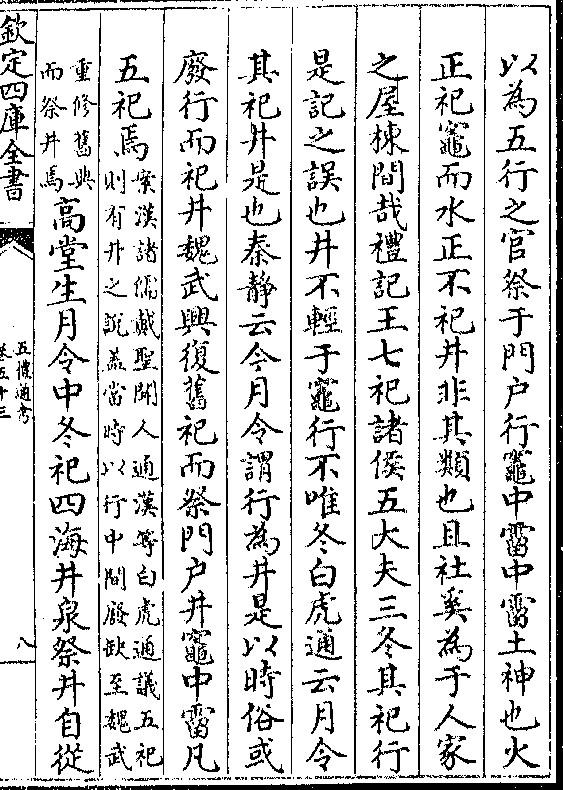 以為五行之官祭于門户行竈中霤中霤土神也火
正祀竈而水正不祀井非其類也且社奚為于人家
之屋棟間哉禮記王七祀諸侯五大夫三冬其祀行
是記之誤也井不輕于竈行不唯冬白虎通云月令
其祀井是也秦静云今月令謂行為井是以時俗或
廢行而祀井魏武興復舊祀而祭門户井竈中霤凡
五祀焉案漢諸儒戴聖聞人通漢等白虎通議五祀則有井之說葢當時以行中間廢缺至魏武
重修舊典而祭井焉高堂生月令中冬祀四海井泉祭井自從
欽定四庫全書
五禮通考
卷五十三
八